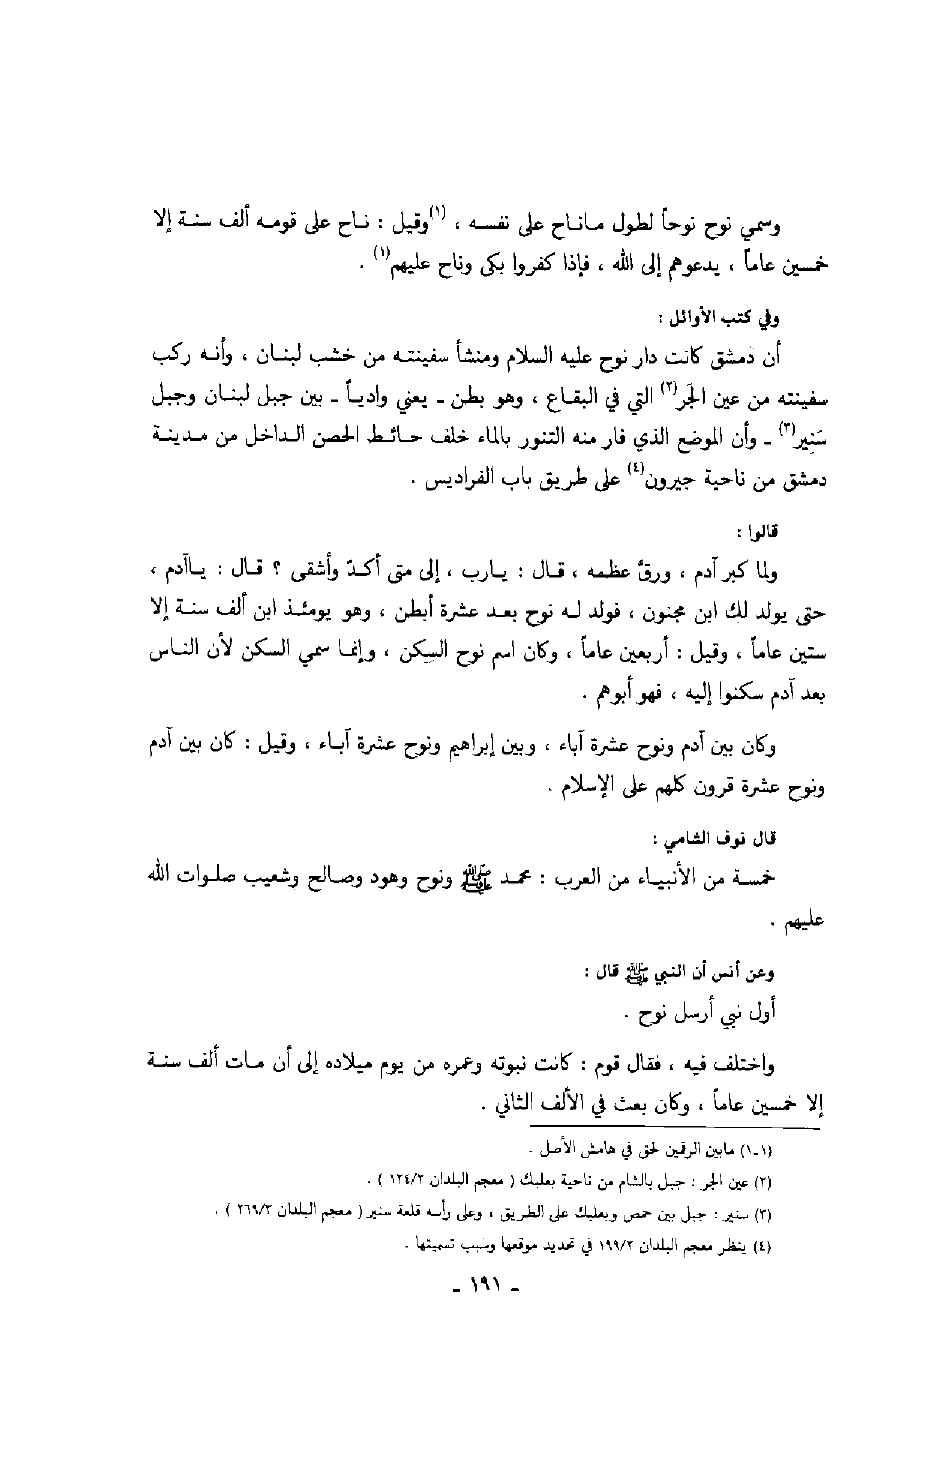 وسمي نوح نوحاً لطول ماناح على نفسه ، (١)وقيل : ناح على قومه ألف سنة إلا
خمسين عاماً ، يدعوهم إلى الله ، فإذا كفروا بكى وناح عليهم(١) .
وفي كتب الأوائل :
أن دمشق كانت دار نوح عليه السلام ومنشأ سفينته من خشب لبنان ، وأنه ركب
سفينته من عين الجر(٢) التي في البقاع ، وهو بطن - يعني وادياً - بين جبل لبنان وجبل
سَنِير(٣) - وأن الموضع الذي فار منه التنور بالماء خلف حائط الحصن الداخل من مدينة
دمشق من ناحية جيرون(٤) على طريق باب الفراديس .
قالوا :
ولما كبر آدم ، ورقَّ عظمه ، قال : يارب ، إلى متى أكدّ وأشقى ؟ قال : ياآدم ،
حتى يولد لك ابن مختون ، فولد له نوح بعد عشرة أبطن ، وهو يومئذ ابن ألف سنة إلا
ستين عاماً ، وقيل : أربعين عاماً ، وكان اسم نوح السكن ، وإنما سمي السكن لأن الناس
بعد آدم سكنوا إليه ، فهو أبوهم .
وكان بين آدم ونوح عشرة آباء ، وبين إبراهيم ونوح عشرة آباء ، وقيل : كان بين آدم
ونوح عشرة قرون كلهم على الإسلام .
قال نوف الشامي :
خمسة من الأنبياء من العرب : محمد ﷺ ونوح وهود وصالح وشعيب صلوات الله
عليهم .
وعن أنس أن النبي ﷺ قال :
أول نبي أرسل نوح .
واختلف فيه ، فقال قوم : كانت نبوته وعمره من يوم ميلاده إلى أن مات ألف سنة
إلا خمسين عاماً ، وكان بعث في الألف الثاني .
(١-١) مابين الرقمين لحق في هامش الأصل .
(٢) عين الجر : جبل بالشام من ناحية بعلبك ( معجم البلدان ١٢٤/٢ ) .
(٣) سنير : جبل بين حمص وبعلبك على الطريق ، وعلى رأسه قلعة سنير ( معجم البلدان ٢٦٩/٣ ) .
(٤) ينظر معجم البلدان ١٩٩/٢ في تحديد موقعها وسبب تسميتها .
- ١٩١ -